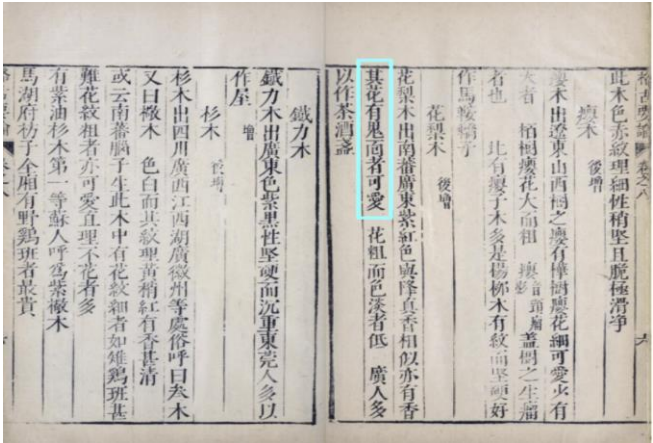 此木色赤紋理細性稍堅且脆極滑淨
癭木 後增
癭木出遼東山西樹之癭有樺樹癭花細可愛少有
大者 栢樹癭花大而粗 蓋樹之生瘤
者也 北有癭子木多是楊柳木有紋而堅硬好
作馬鞍鞽子
花梨木 後增
花梨木出南番廣東紫紅色與降真香相似亦有香
其花有鬼面者可愛 花粗而色淡者低 廣人多
以作茶酒盞
鐵力木
鐵力木出廣東色紫黑性堅硬而沉重東莞人多以
作屋 增
杉木 後增
杉木出四川廣西江西湖廣徽州等處俗呼曰杀木
又曰檄木 色白而其紋理黃稍紅有香甚清
或云南番腦子生此木中有花紋細者如雉鷄班甚
難花紋粗者亦可愛直理不花者多
有紫油杉木第一等蘇人呼爲紫檄木
馬湖府枋子全廂有野鷄班者最貴